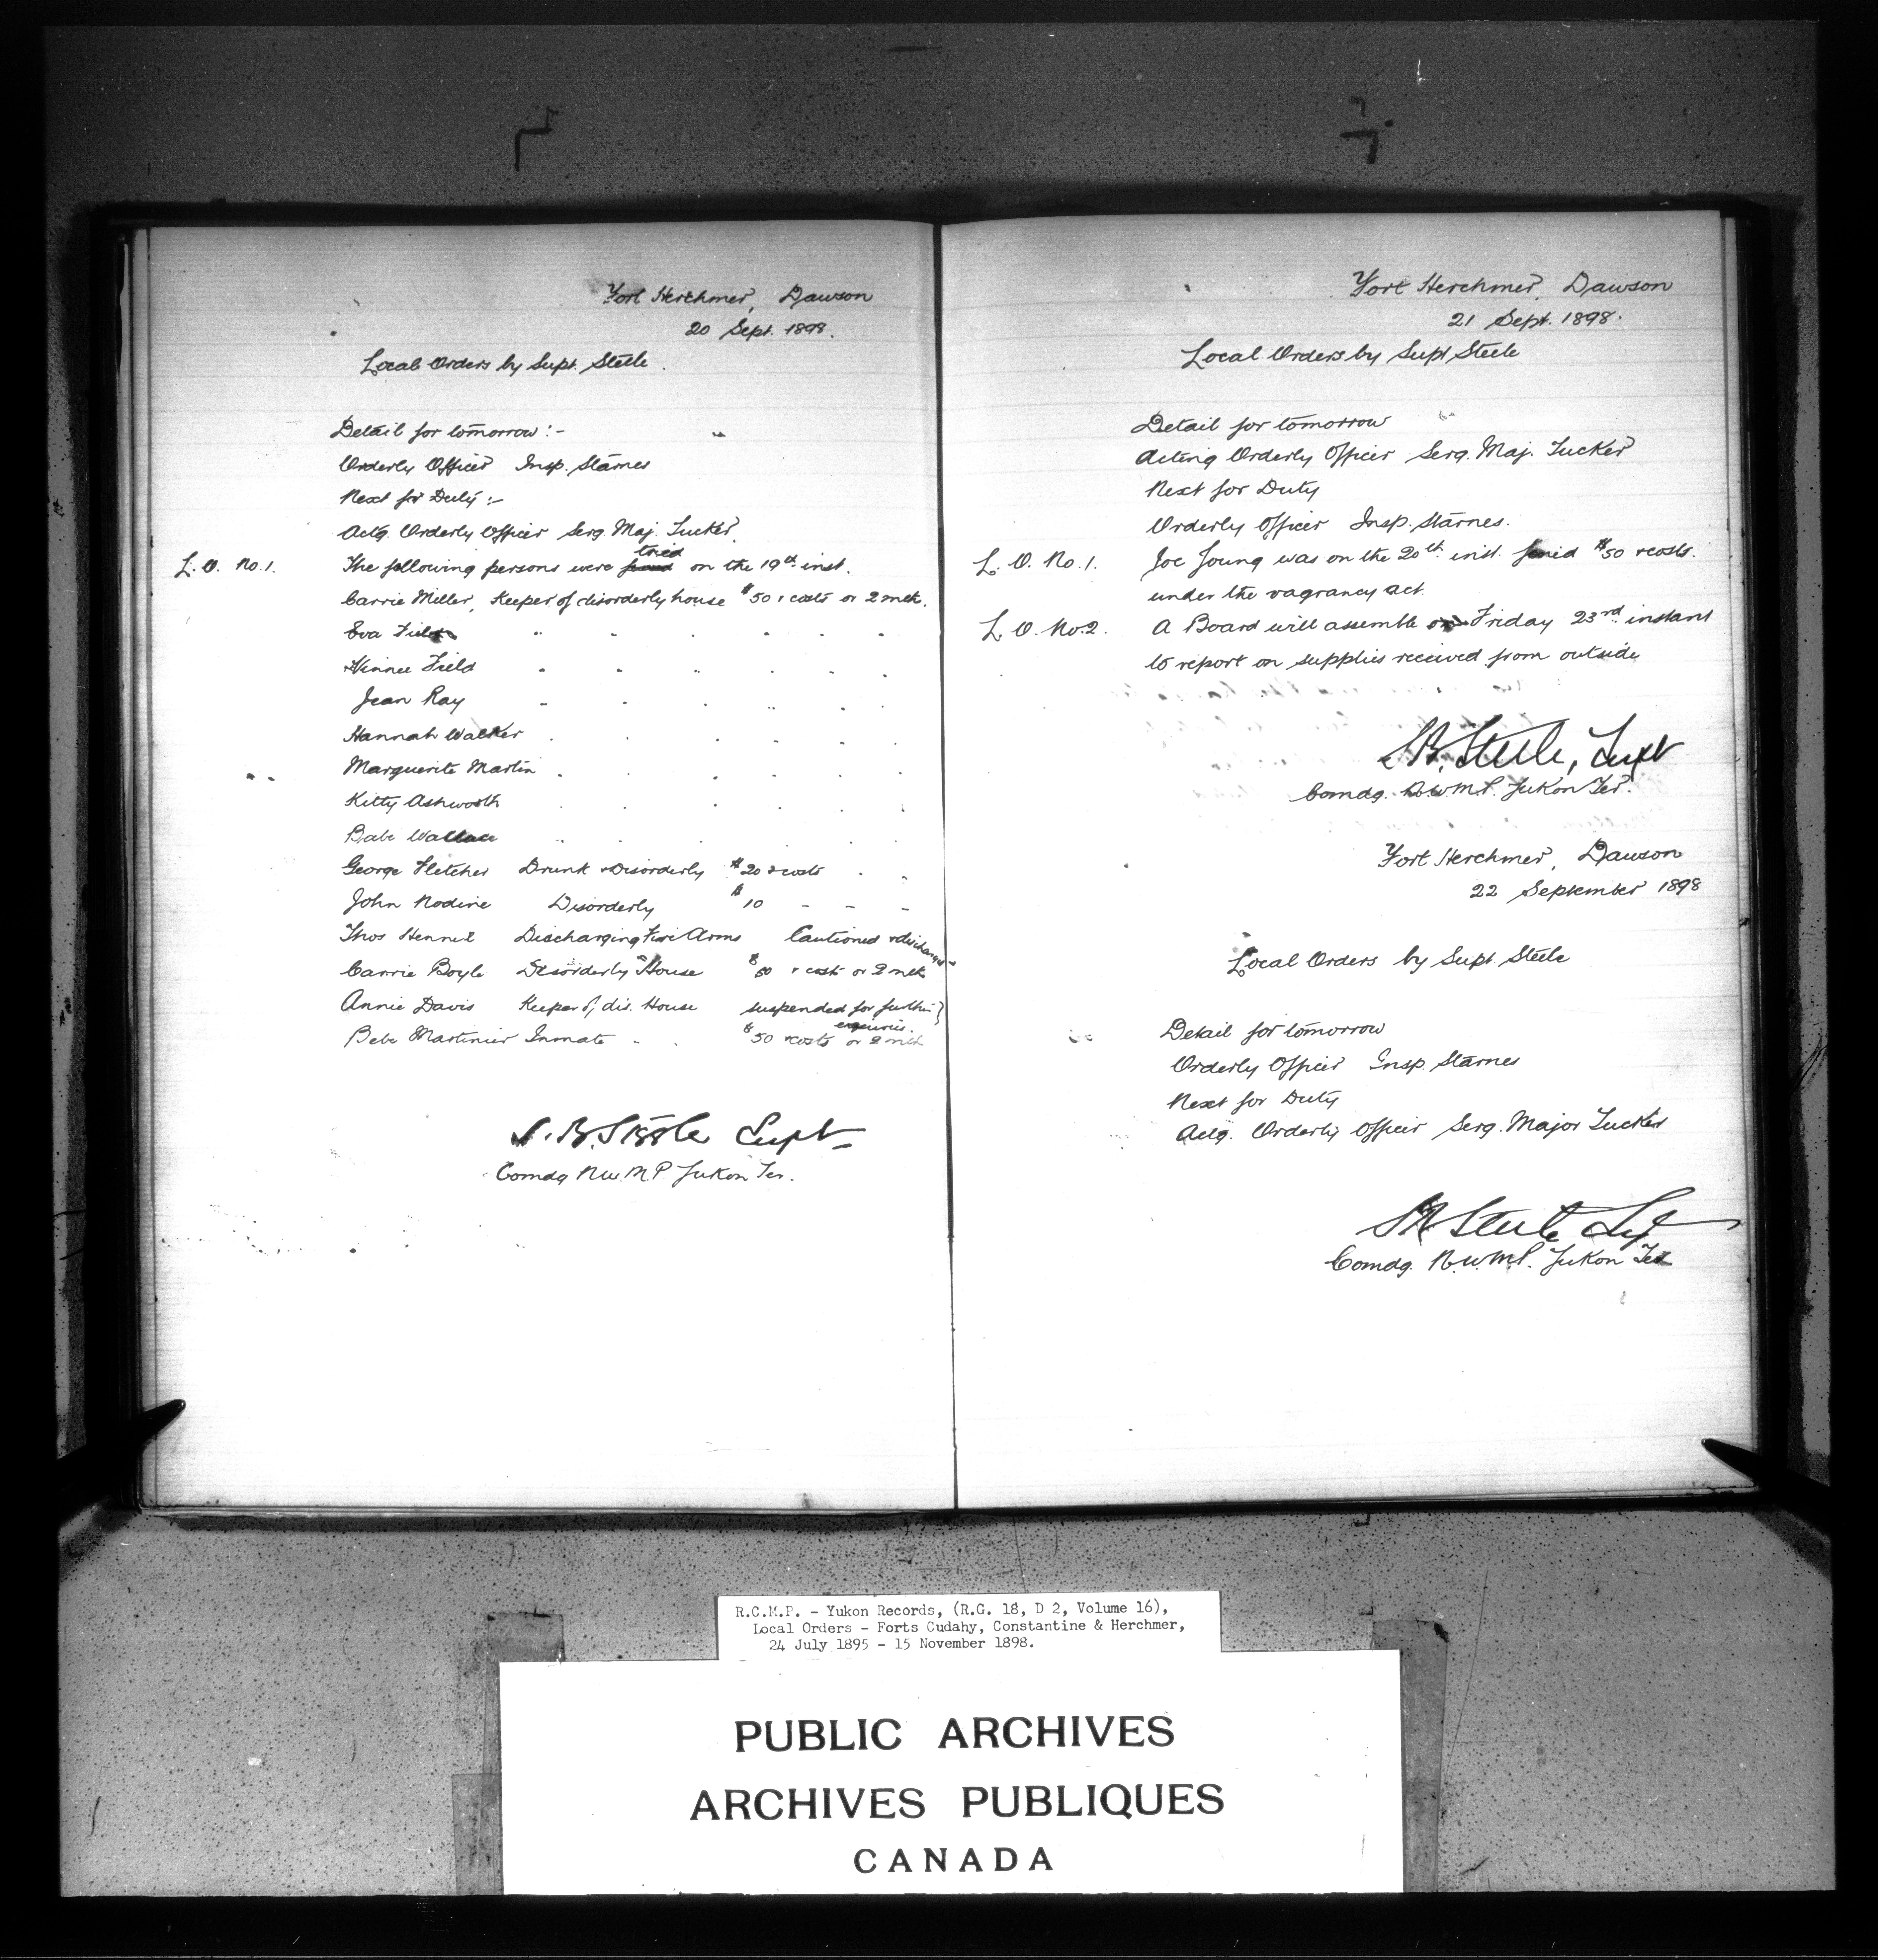 Fort Herchmer, Dawson
20 Sept. 1898.
Local Orders by Supt. Steele.
Detail for tomorrow:-
Orderly Officer Insp. Starnes
Next for Duty:-
Actg. Orderly Officer Serg. Maj. Tucker.
L. O. No. 1. The following persons were fined tried on the 19th inst.
Carrie Miller, Keeper of disorderly house $50 & costs or 2 mth.
Eva Field " " " " "
Minnie Field " " " " " "
Jean Ray " " " " " "
Hannah Walker " " " " "
Marguerite Martin " " " "
Kitty Ashworth " " " "
Babe Wallace " " " "
George Fletcher Drunk & Disorderly $20 & costs " "
John Nodine Disorderly $10 - - -
Thos Hennet Discharging Fire Arms Cautioned & discharged
Carrie Boyle Disorderly House $50 & costs or 2 mth
Annie Davis Keeper of, dis. House suspended for further }
enquiries.
Bebe Martinier Inmate " " $50 & costs or 2 mth
S. B. Steele Supt
Comdg N.W.M.P Yukon Ter.
Fort Herchmer, Dawson
21 Sept. 1898.
Local Orders by Supt Steele
Detail for tomorrow
Acting Orderly Officer Serg. Maj. Tucker
Next for Duty
Orderly Officer Insp. Starnes.
L. O. No. 1. Joe Young was on the 20th inst. fined $50 & costs.
under the vagrancy act.
L. O. No. 2. A Board will assemble on Friday 23rd instant
to report on supplies received from outside
S.B. Steele, Supt
Comdg. N.W.M.P. Yukon Ter.
Fort Herchmer, Dawson
22 September 1898
Local Orders by Supt Steele
Detail for tomorrow
Orderly Officer Insp. Starnes
Next for Duty
Actg. Orderly Officer Serg. Major Tucker
SB Steele Supt
Comdg. N.W.M.P. Yukon Ter
R.C.M.P. - Yukon Records, (R.G. 18, D 2, Volume 16),
Local Orders - Forts Cudahy, Constantine & Herchmer,
24 July 1895 - 15 November 1898.
PUBLIC ARCHIVES
ARCHIVES PUBLIQUES
CANADA